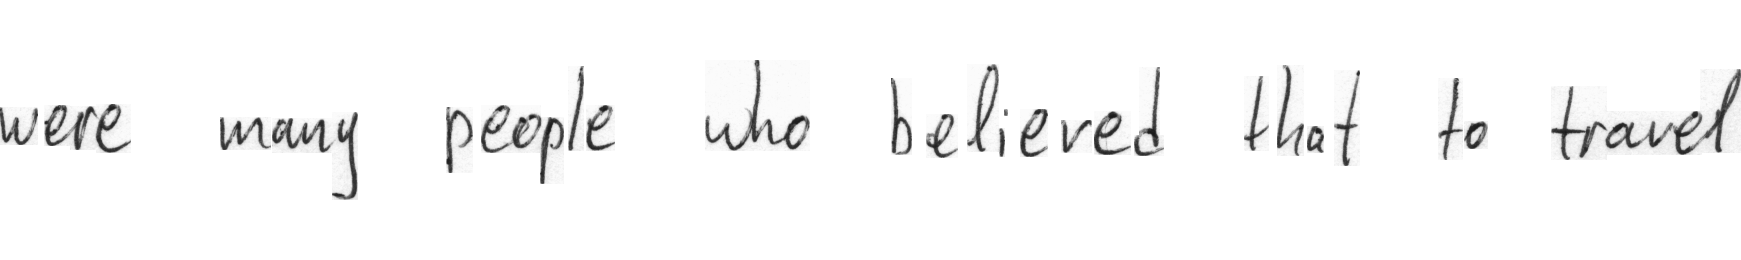 were many people who believed that to travel